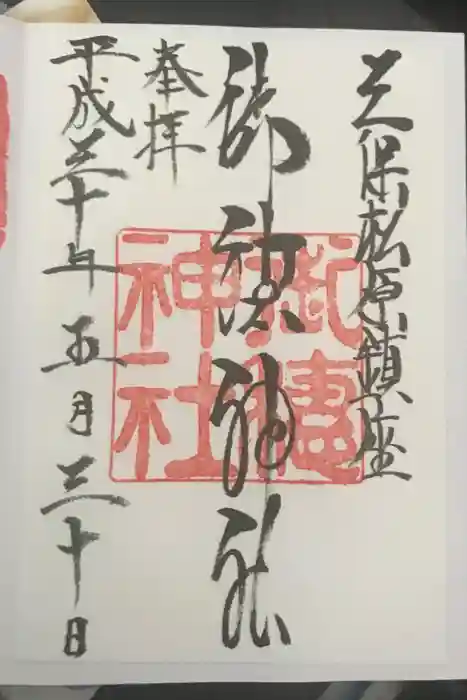 三保松原鎮座
御穂神社
奉拝
平成三十年五月三十日
御穗
神社